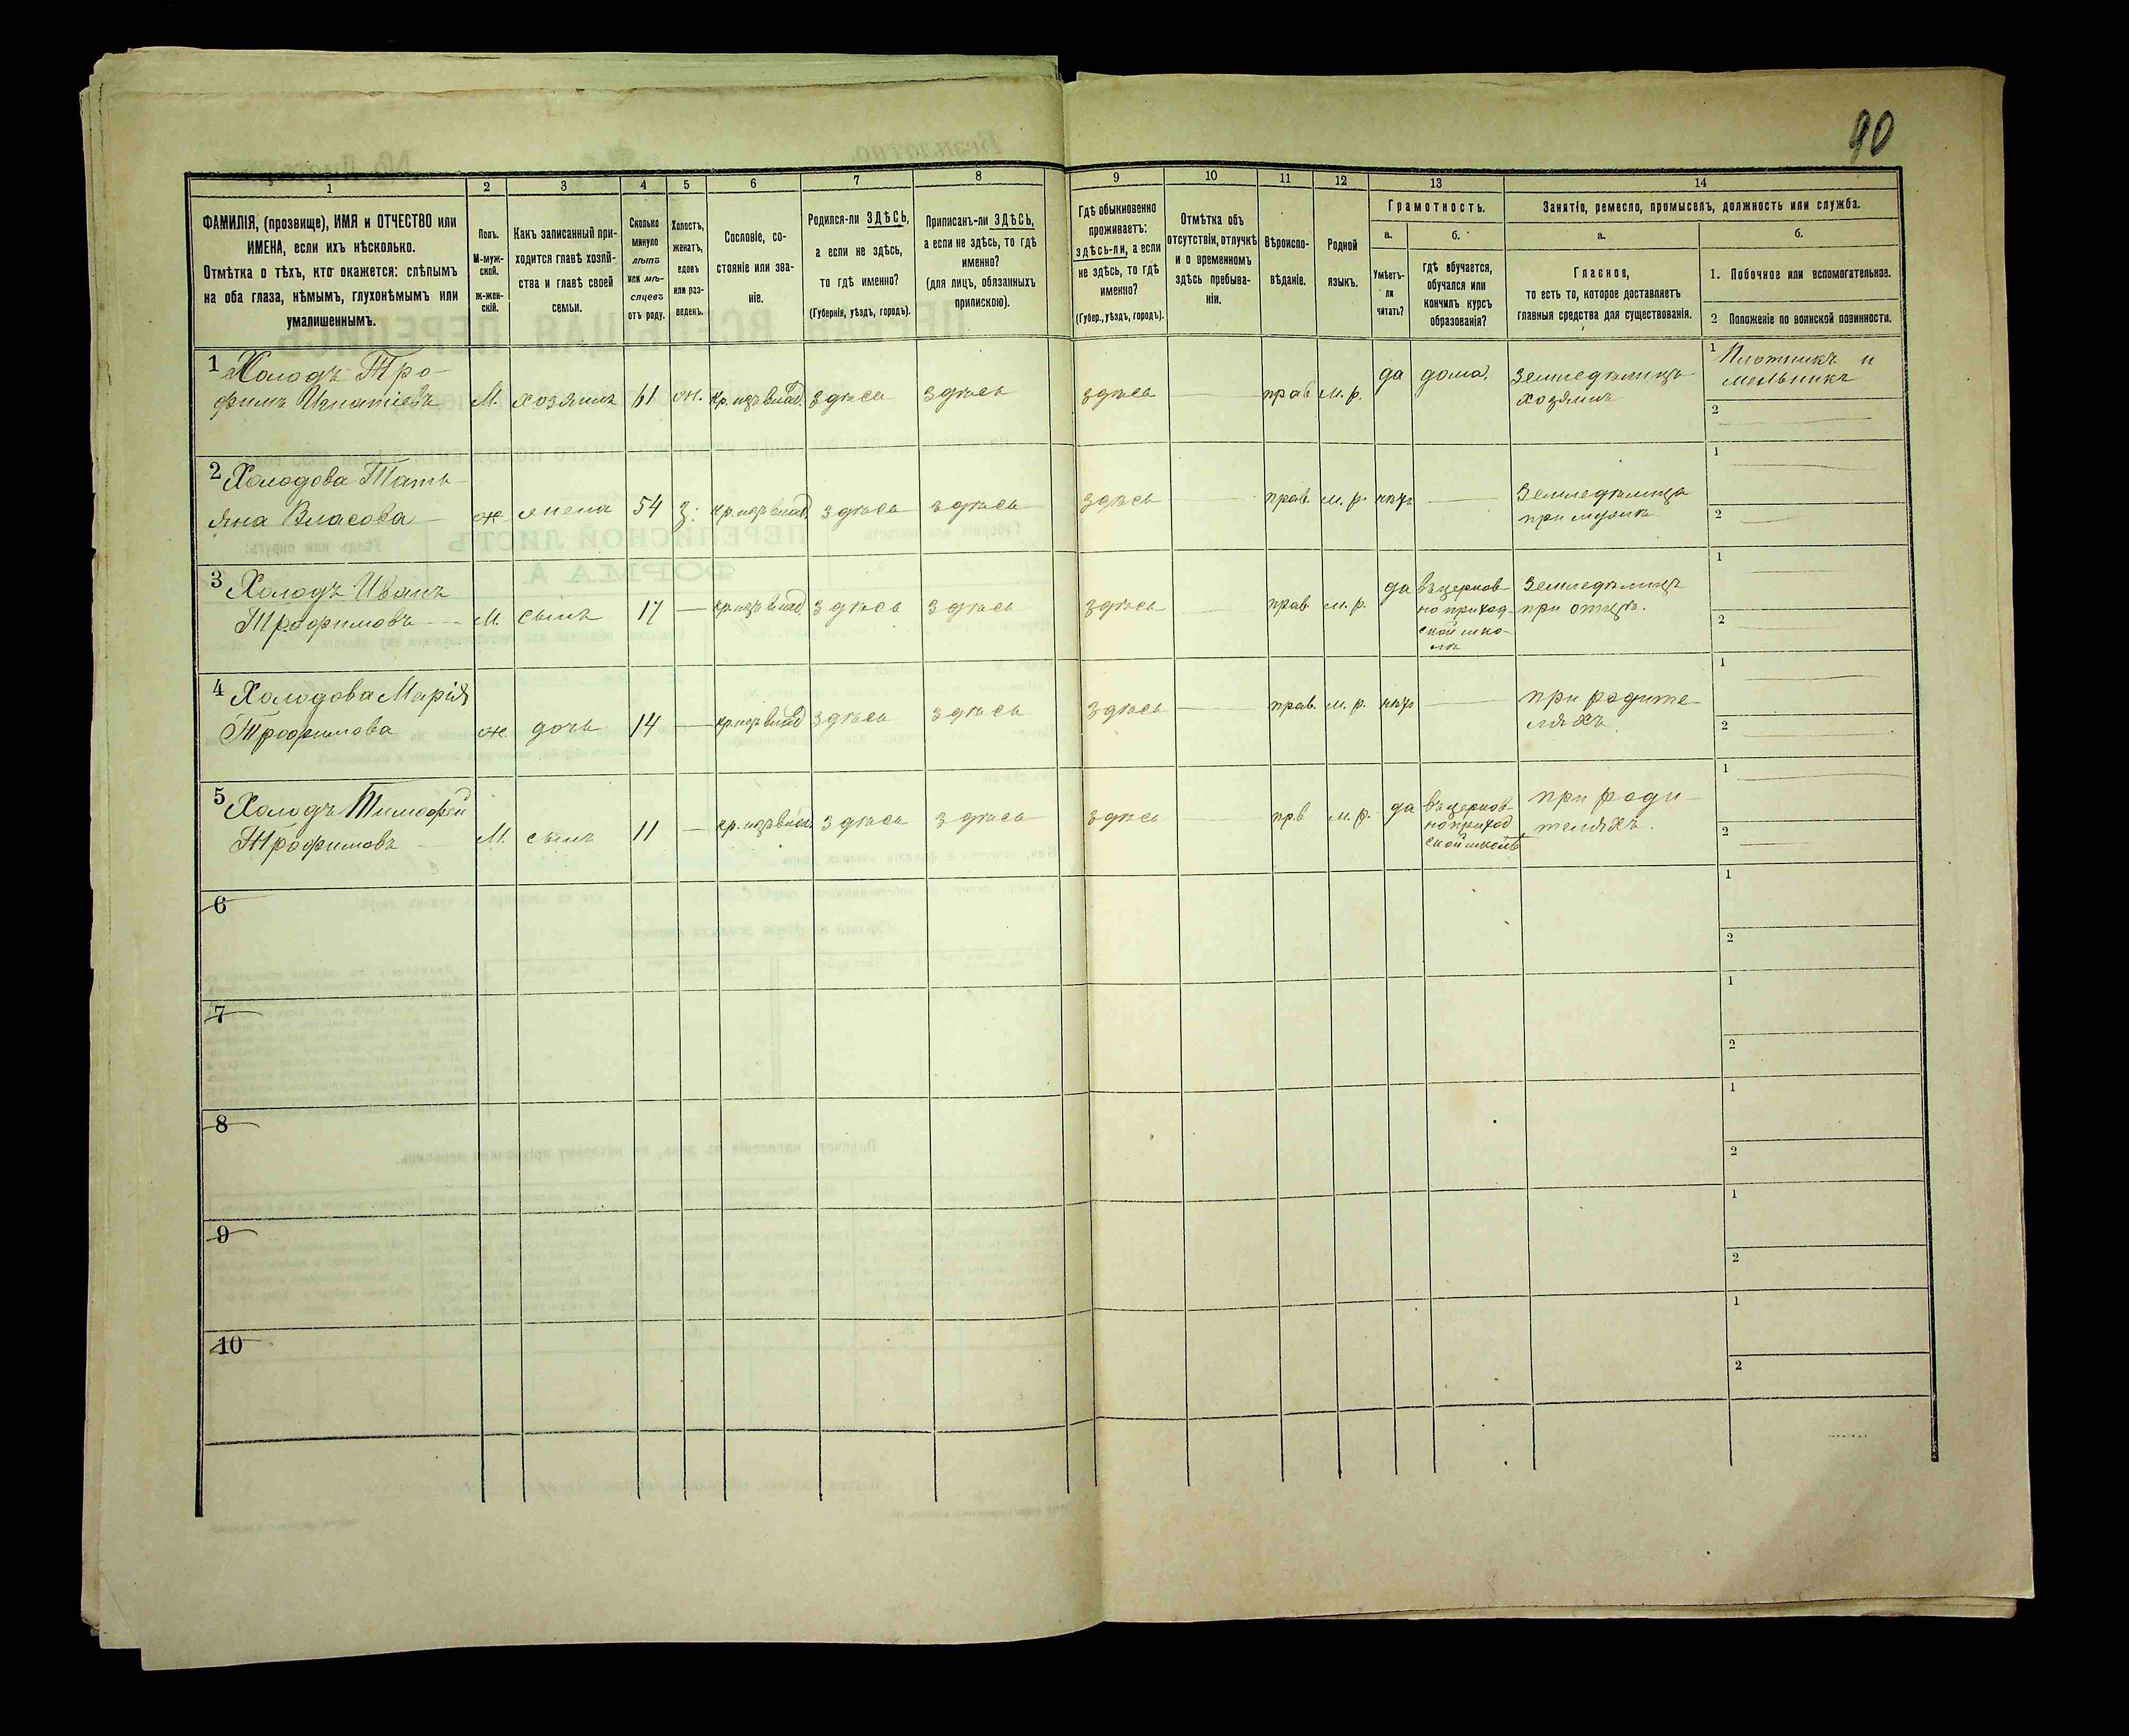 90
1 2 3 4 5 6 7 8 9 10 11 12 13 14
ФАМИЛІЯ, (прозвище), ИМЯ и ОТЧЕСТВО или
ИМЕНА, если ихъ нѣсколько.
Отмѣтка о тѣхъ, кто окажется: слѣпымъ
на оба глаза, нѣмымъ, глухонѣмымъ или
умалишеннымъ.
Полъ.
М-муж-
ской.
ж-жен-
скій.
Какъ записанный при-
ходится главѣ хозяй-
ства и главѣ своей
семьи.
Сколько
минуло
лѣтъ
или мѣ-
сяцевъ
отъ роду.
Холостъ,
женатъ,
вдовъ
или раз-
веденъ.
Сословіе, со-
стояніе или зва-
ніе.
Родился-ли ЗДѢСЬ,
а если не здѣсь,
то гдѣ именно?
(Губернія, уѣздъ, городъ).
Приписанъ-ли ЗДѢСЬ,
а если не здѣсь, то гдѣ
именно?
(для лицъ, обязанныхъ
припискою).
Гдѣ обыкновенно
проживаетъ:
здѣсь-ли, а если
не здѣсь, то гдѣ
именно?
(Губер., уѣздъ, городъ).
Отмѣтка объ
отсутствіи, отлучкѣ
и о временномъ
здѣсь пребыва-
ніи.
Вѣроиспо-
вѣданіе.
Родной
языкъ.
Грамотность.
а.
Умѣетъ-
ли
читать?
б.
гдѣ обучается,
обучался или
кончилъ курсъ
образованія?
Занятіе, ремесло, промыселъ, должность или служба.
а.
Главное,
то есть то, которое доставляетъ
главныя средства для существованія.
б.
1. Побочное или вспомогательное.
2 Положеніе по воинской повинности.
1 Холодъ Тро-
фимъ Игнатіевъ М. хозяинъ 61 ж. кр. изъ влад. здѣсь здѣсь здѣсь прав м. р. да дома. Земледѣлецъ
хозяинъ
1 Плотникъ и
мельникъ
2
2 Холодова Тать-
яна Власова ж. жена 54 з. кр. изъ влад. здѣсь здѣсь здѣсь прав. м. р. нѣтъ Земледѣлица
при мужѣ
1
2
3 Холодъ Иванъ
Трофимовъ М. сынъ 17 кр. изъ влад. здѣсь здѣсь здѣсь прав. м. р. да въ церков-
но приход-
ской шко-
лѣ
Земледѣлецъ
при отцѣ.
1
2
4 Холодова Марія
Трофимова ж. дочь 14 кр. изъ влад здѣсь здѣсь здѣсь прав. м. р. нѣтъ при родите-
ляхъ.
1
2
5 Холодъ Тимофей
Трофимовъ М. сынъ 11 кр. изъ влад. здѣсь здѣсь здѣсь прв м. р. да въ церков-
но приход
ской школѣ
при роди-
теляхъ.
1
2
6
1
2
7
1
2
8
1
2
9
1
2
10
1
2